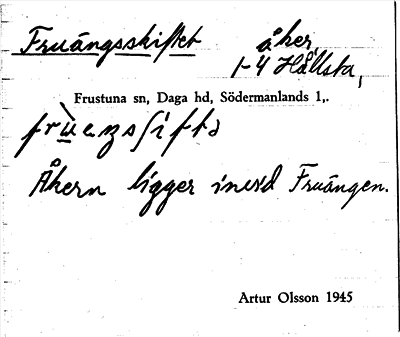 Fruängsskiftet åker,
1-4 Hållsta,
Frustuna sn, Daga hd, Södermanlands l,.
Åkern ligger invid Fruängen.
Artur Olsson 1945